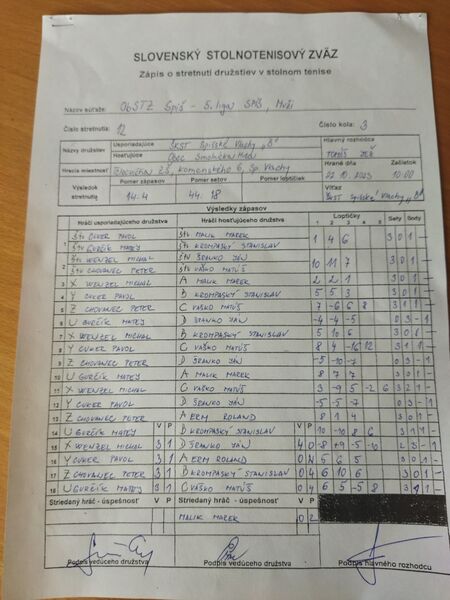 SLOVENSKÝ STOLNOTENISOVÝ ZVÄZ
Zápis o stretnutí družstiev v stolnom tenise
Názov súťaže: ObSTZ Spiš - 5. liga SNV, Muži
Číslo stretnutia: 12 Číslo kola: 3
Názvy družstiev Usporiadajúce ŠKST Spišské Vlachy "B" Hlavný rozhodca
Hosťujúce Obec
Hrané dňa Začiatok
Hracia miestnosť Komenského 6, Sp. Vlachy 22.10.2023 10:00
Výsledok stretnutia Pomer zápasov Pomer setov Pomer loptičiek Víťaz
14:4 44:18 ŠKST Spišské Vlachy "B"
Výsledky zápasov
Hráči usporiadajúceho družstva Hráči hosťujúceho družstva Loptičky Sety Body
1 2 3 4 5
1 CUKER PAVOL MALIK MAREK 1 4 6 3 0 1 -
GURČÍK MATEJ KROMPASKÝ STANISLAV
2 WENZEL MICHAL ŠRANKO JÁN 10 11 7 3 0 1 -
CHOVANEC PETER VAŠKO MATÚŠ
3 X WENZEL MICHAL A MALIK MAREK 2 2 1 3 0 1 -
4 Y CUKER PAVOL B KROMPASKÝ STANISLAV 5 5 3 3 0 1 -
5 Z CHOVANEC PETER C VAŠKO MATÚŠ 7 -6 6 8 3 1 1 -
6 U GURČÍK MATEJ D ŠRANKO JÁN -4 -4 -5 0 3 - 1
7 X WENZEL MICHAL B KROMPASKÝ STANISLAV 5 10 6 3 0 1 -
8 Y CUKER PAVOL C VAŠKO MATÚŠ 8 4 -16 12 3 1 1 -
9 Z CHOVANEC PETER D ŠRANKO JÁN -5 -10 -7 0 3 - 1
10 U GURČÍK MATEJ A MALIK MAREK 8 7 7 3 0 1 -
11 X WENZEL MICHAL C VAŠKO MATÚŠ 3 -9 5 -2 6 3 2 1 -
12 Y CUKER PAVOL D ŠRANKO JÁN -5 -5 -7 0 3 - 1
13 Z CHOVANEC PETER A ERM ROLAND 8 1 4 3 0 1 -
14 U GURČÍK MATEJ V P B KROMPASKÝ STANISLAV V P
15 X WENZEL MICHAL 3 1 D ŠRANKO JÁN 4 0 -8 +9 -5 -10
16 Y CUKER PAVOL 3 1 A ERM ROLAND 5 6 5 3 0 1 -
17 Z CHOVANEC PETER 3 1 B KROMPASKÝ STANISLAV 0 4 6 10 6 3 0 1 -
18 U GURČÍK MATEJ 3 1 C VAŠKO MATÚŠ 0 4 6 5 -5 8 3 1 1 -
Striedaný hráč - úspešnosť V P Striedaný hráč - úspešnosť V P
MALIK MAREK 0 2
Podpis vedúceho družstva Podpis vedúceho družstva Podpis hlavného rozhodcu